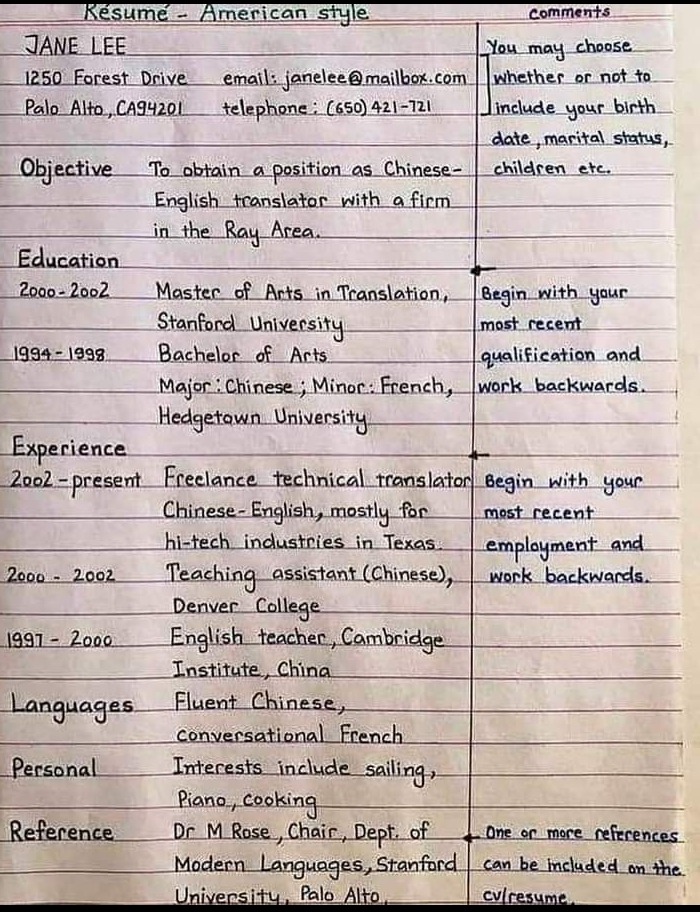 Résumé - American style
comments
JANE LEE
1250 Forest Drive email: janelee@mailbox.com
Palo Alto, CA94201 telephone: (650) 421-721
You may choose
whether or not to
include your birth
date, marital status,
children etc.
Objective To obtain a position as Chinese-
English translator with a firm
in the Ray Area.
Education
2000-2002 Master of Arts in Translation,
Stanford University
1994-1998 Bachelor of Arts
Major: Chinese; Minor: French,
Hedgetown University
Begin with your
most recent
qualification and
work backwards.
Experience
2002-present Freelance technical translator
Chinese-English, mostly for
hi-tech industries in Texas.
2000 - 2002 Teaching assistant (Chinese),
Denver College
1997 - 2000 English teacher, Cambridge
Institute, China
Begin with your
most recent
employment and
work backwards.
Languages Fluent Chinese,
conversational French
Personal Interests include sailing,
Piano, cooking
Reference Dr M Rose, Chair, Dept. of
Modern Languages, Stanford
University, Palo Alto,
One or more references
can be included on the
cv/resume.